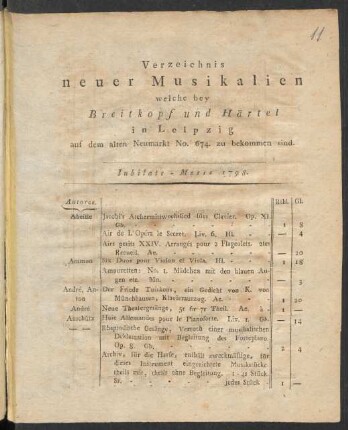 11
Verzeichnis
neuer Musikalien
welche bey
Breitkopf und Härtel
in Leipzig
auf dem alten Neumarkt No. 674. zu bekommen sind.
Jubilate-Messe 1798.
Autores. Rthl. Gl.
Abeille Jacobis Aschermittwochslied fürs Clavier. Op. XI.
Gb. 1 8
Air de L'Opera le Secret. Liv. 6. III. — 4
Airs petits XXIV. Arranges pour 2 Flageolets. 2tes
Recueil. Ae. — 20
Six Duos pour Violon et Viola. III. 1 18
Amouretten: No. 1. Mädchen mit den blauen Au-
gen etc. —
André, An- Der Friede Tuiskons, ein Gedicht von K. von
ton Münchhausen, Klavierauszug. Ae. 1 20
André Neue Theatergesänge, 5r 6r 7r Theil. Ae. à 1 —
Huit Allemandes pour le Pianoforte. Liv. 1. Gb. — 14
Rhapsodische Gesänge, Versuch einer musikalischen
Deklamation mit Begleitung des Fortepiano.
Op. 8. Gb. 2 4
Archiv, für die Harfe, enthält
dieses Instrument eingerichtete Musikstücke
theils mit, theils ohne Begleitung. Stück
jedes Stück 1 —